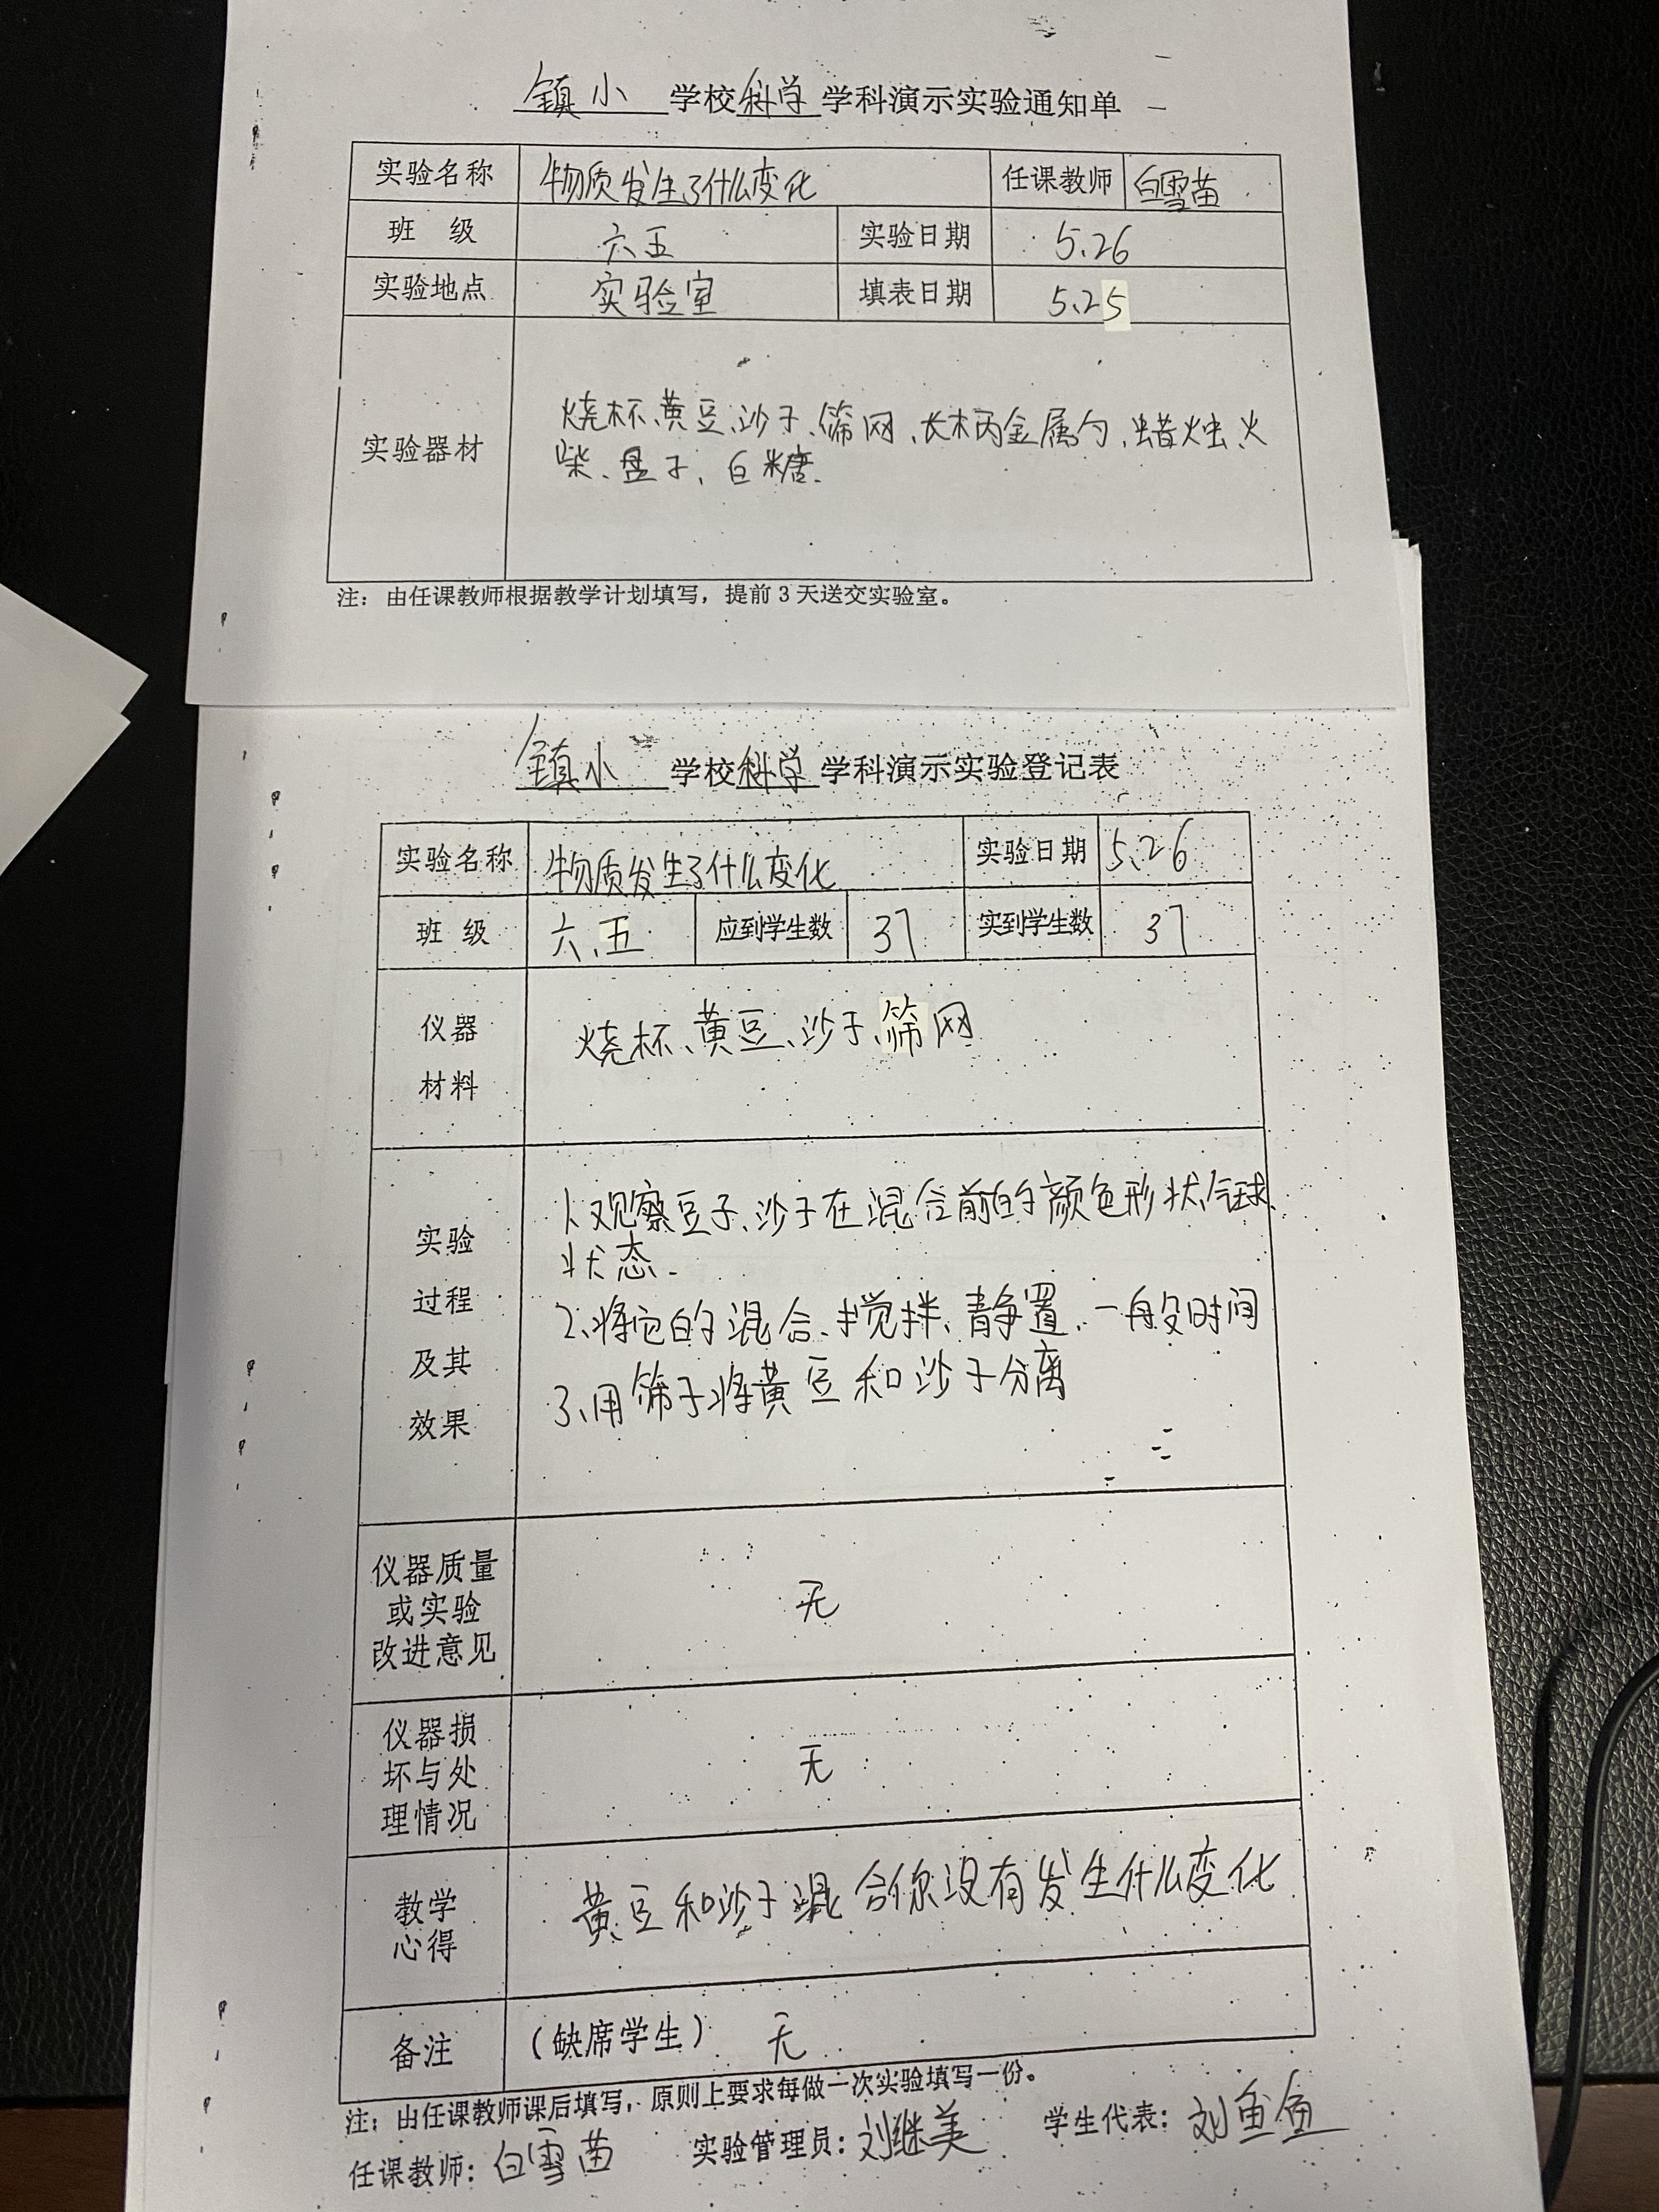 镇小 学校 科学 学科演示实验通知单
实验名称 物质发生了什么变化 任课教师 白雪苗
班 级 六五 实验日期 5.26
实验地点 实验室 填表日期 5.25
实验器材 烧杯、黄豆、沙子、筛网、长柄金属勺、蜡烛、火
柴、盘子、白糖.
注：由任课教师根据教学计划填写，提前3天送交实验室。
镇小 学校 科学 学科演示实验登记表
实验名称 物质发生了什么变化 实验日期 5.26
班 级 六、五 应到学生数 37 实到学生数 37
仪器
材料
烧杯、黄豆、沙子、筛网
实验
过程
及其
效果
1、观察豆子、沙子在混合前的颜色形状、
状态.
2、将它的混合、搅拌、静置、一段时间
3、用筛子将黄豆和沙子分离
仪器质量
或实验
改进意见
无
仪器损
坏与处
理情况
无
教学
心得
黄豆和沙子混合 没有发生什么变化
备注 （缺席学生） 无
注：由任课教师课后填写，原则上要求每做一次实验填写一份。
任课教师：白雪苗 实验管理员：刘继美 学生代表：刘鱼鱼